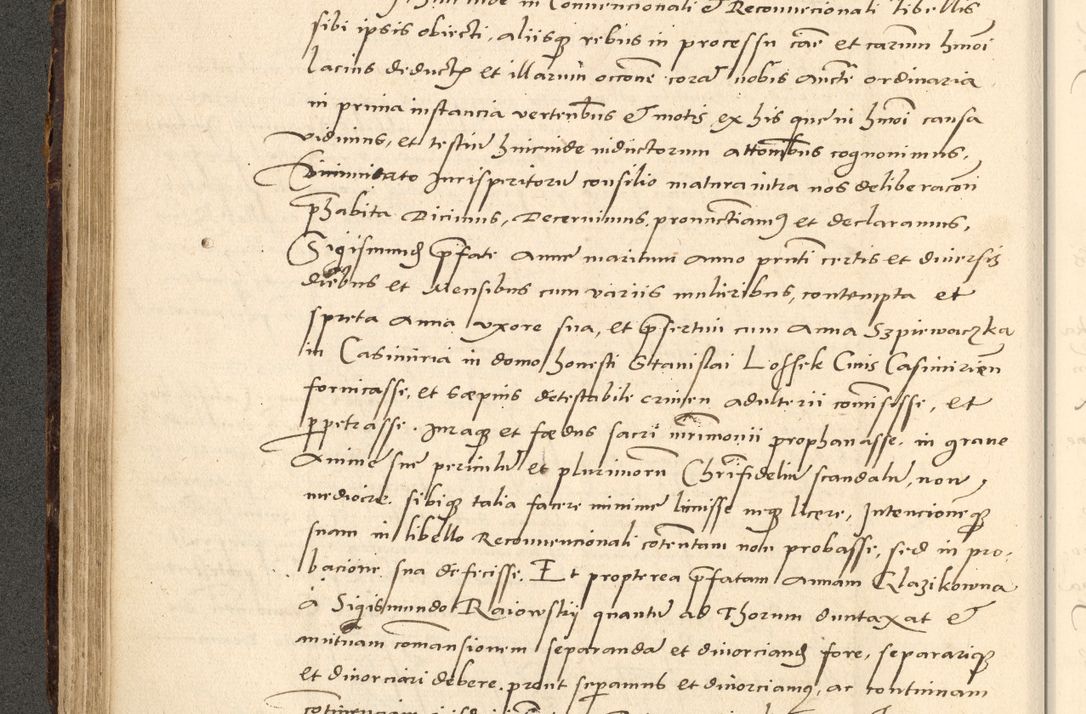 hincinde in Conuencionali et Reconuencionali libellis
sibi ipsis obiecti, aliisq rebus in processu cae et carum hmoi
lacius deductis et illarum occone cora nobis aucte ordinaria
in prima instancia vertentibus et motis ex his que in hmoi causa
vidimus, et testiu hincinde inductorum attonibus cognouimus,
Communicato Jurisperitoru consilio matura intra nos deliberaconi
phabita Dicimus, Decernimus, pronunctiamq et declaramus,
Sigismund pfate Anne maritum anno pnti certis et diuersis
diebus et Mensibus cum variis mulieribus, contempta et
spreta Anna vxore sua, et psertim cum Anna Szpiewaczka
in Casimiria in domo honesti Stanislai Lossek Ciuis Casimirien
fornicasse, et saepius detestabile crimen adulterii comisisse, et
ppetrasse. Juraq et foedus sacri mrimonii prophanasse. in graue
Anime sue periculu et plurimoru Chrifideliu scandalu, non
mediocre. sibiq talia facere minime licuisse neq licere, Intencioneq
suam in libello Reconuencionali cotentam non probasse, sed in pro-
bacione sua defecisse. Et propterea pfatam Annam Glazikowna
a Sigismundo Raiowskij quantu ad Thorum duntaxat et
mutuam comansionem separanda et diuorciand fore, separariq
et diuorciari debere. prout sepamus et diuorciamq, ac continuam